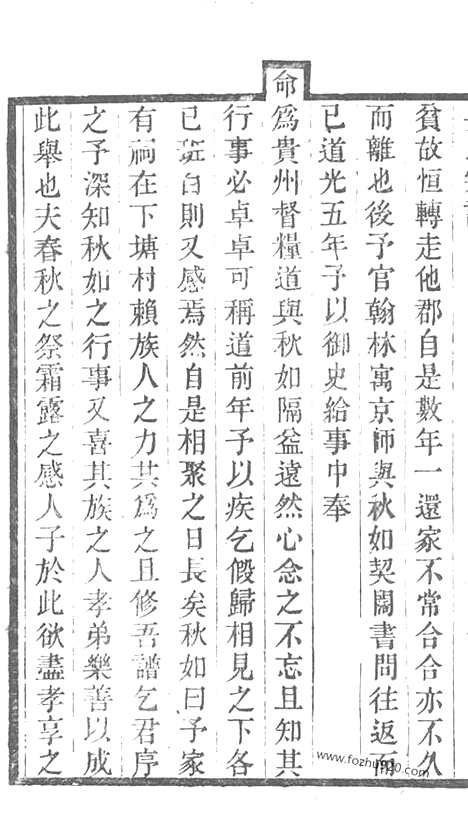 貧故恒轉走他郡自是數年一還家不常合合亦不久
而離也後予官翰林寓京師與秋如契闊書問往返而
已道光五年予以御史給事中奉
命爲貴州督糧道與秋如隔益遠然心念之不忘且知其
行事必卓卓可稱道前年予以疾乞假歸相見之下各
已斑白則又感焉然自是相聚之日長矣秋如曰予家
有祠在下塘村賴族人之力共爲之且修吾譜乞君序
之予深知秋如之行事又喜其族之人孝弟樂善以成
此舉也夫春秋之祭霜露之感人子於此欲盡孝享之
www.fozhu920.com